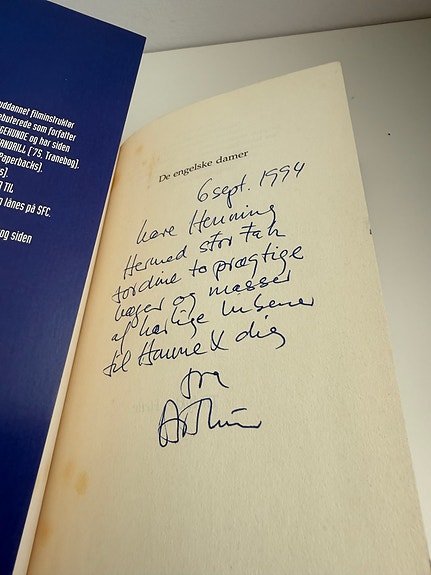 uddannet filminstruktør
ebuterede som forfatter
GEHUNDE og har siden
ANDRILL ('75, Tranebog),
Paperbacks),
s).
TIL
g lånes på SFC.
og siden
De engelske damer
6 sept. 1994
kære Henning
Hermed stor Tak
for dine to prægtige
bøger og masser
af kærlige hilsener
til Hanne & dig
fra